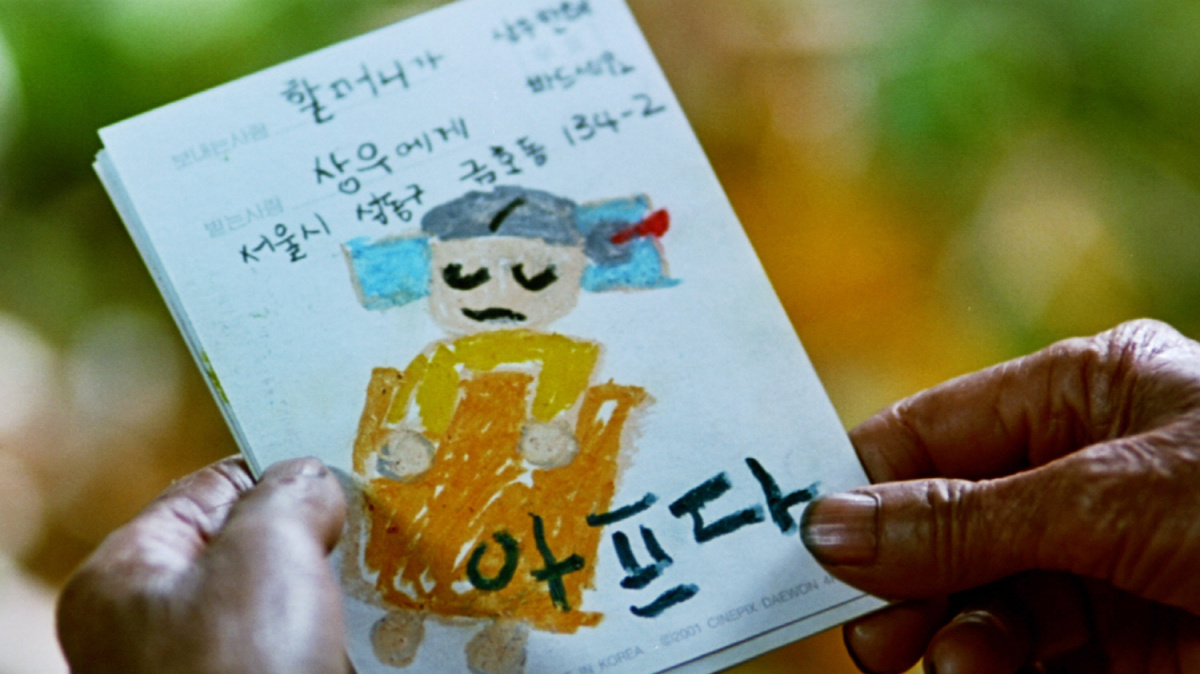 할머니가
보내는사람
상우한테
받는사람
상우에게
서울시 성동구 금호동 134-2
아프다
IN KOREA ©2001 CINEPIX DAEWON